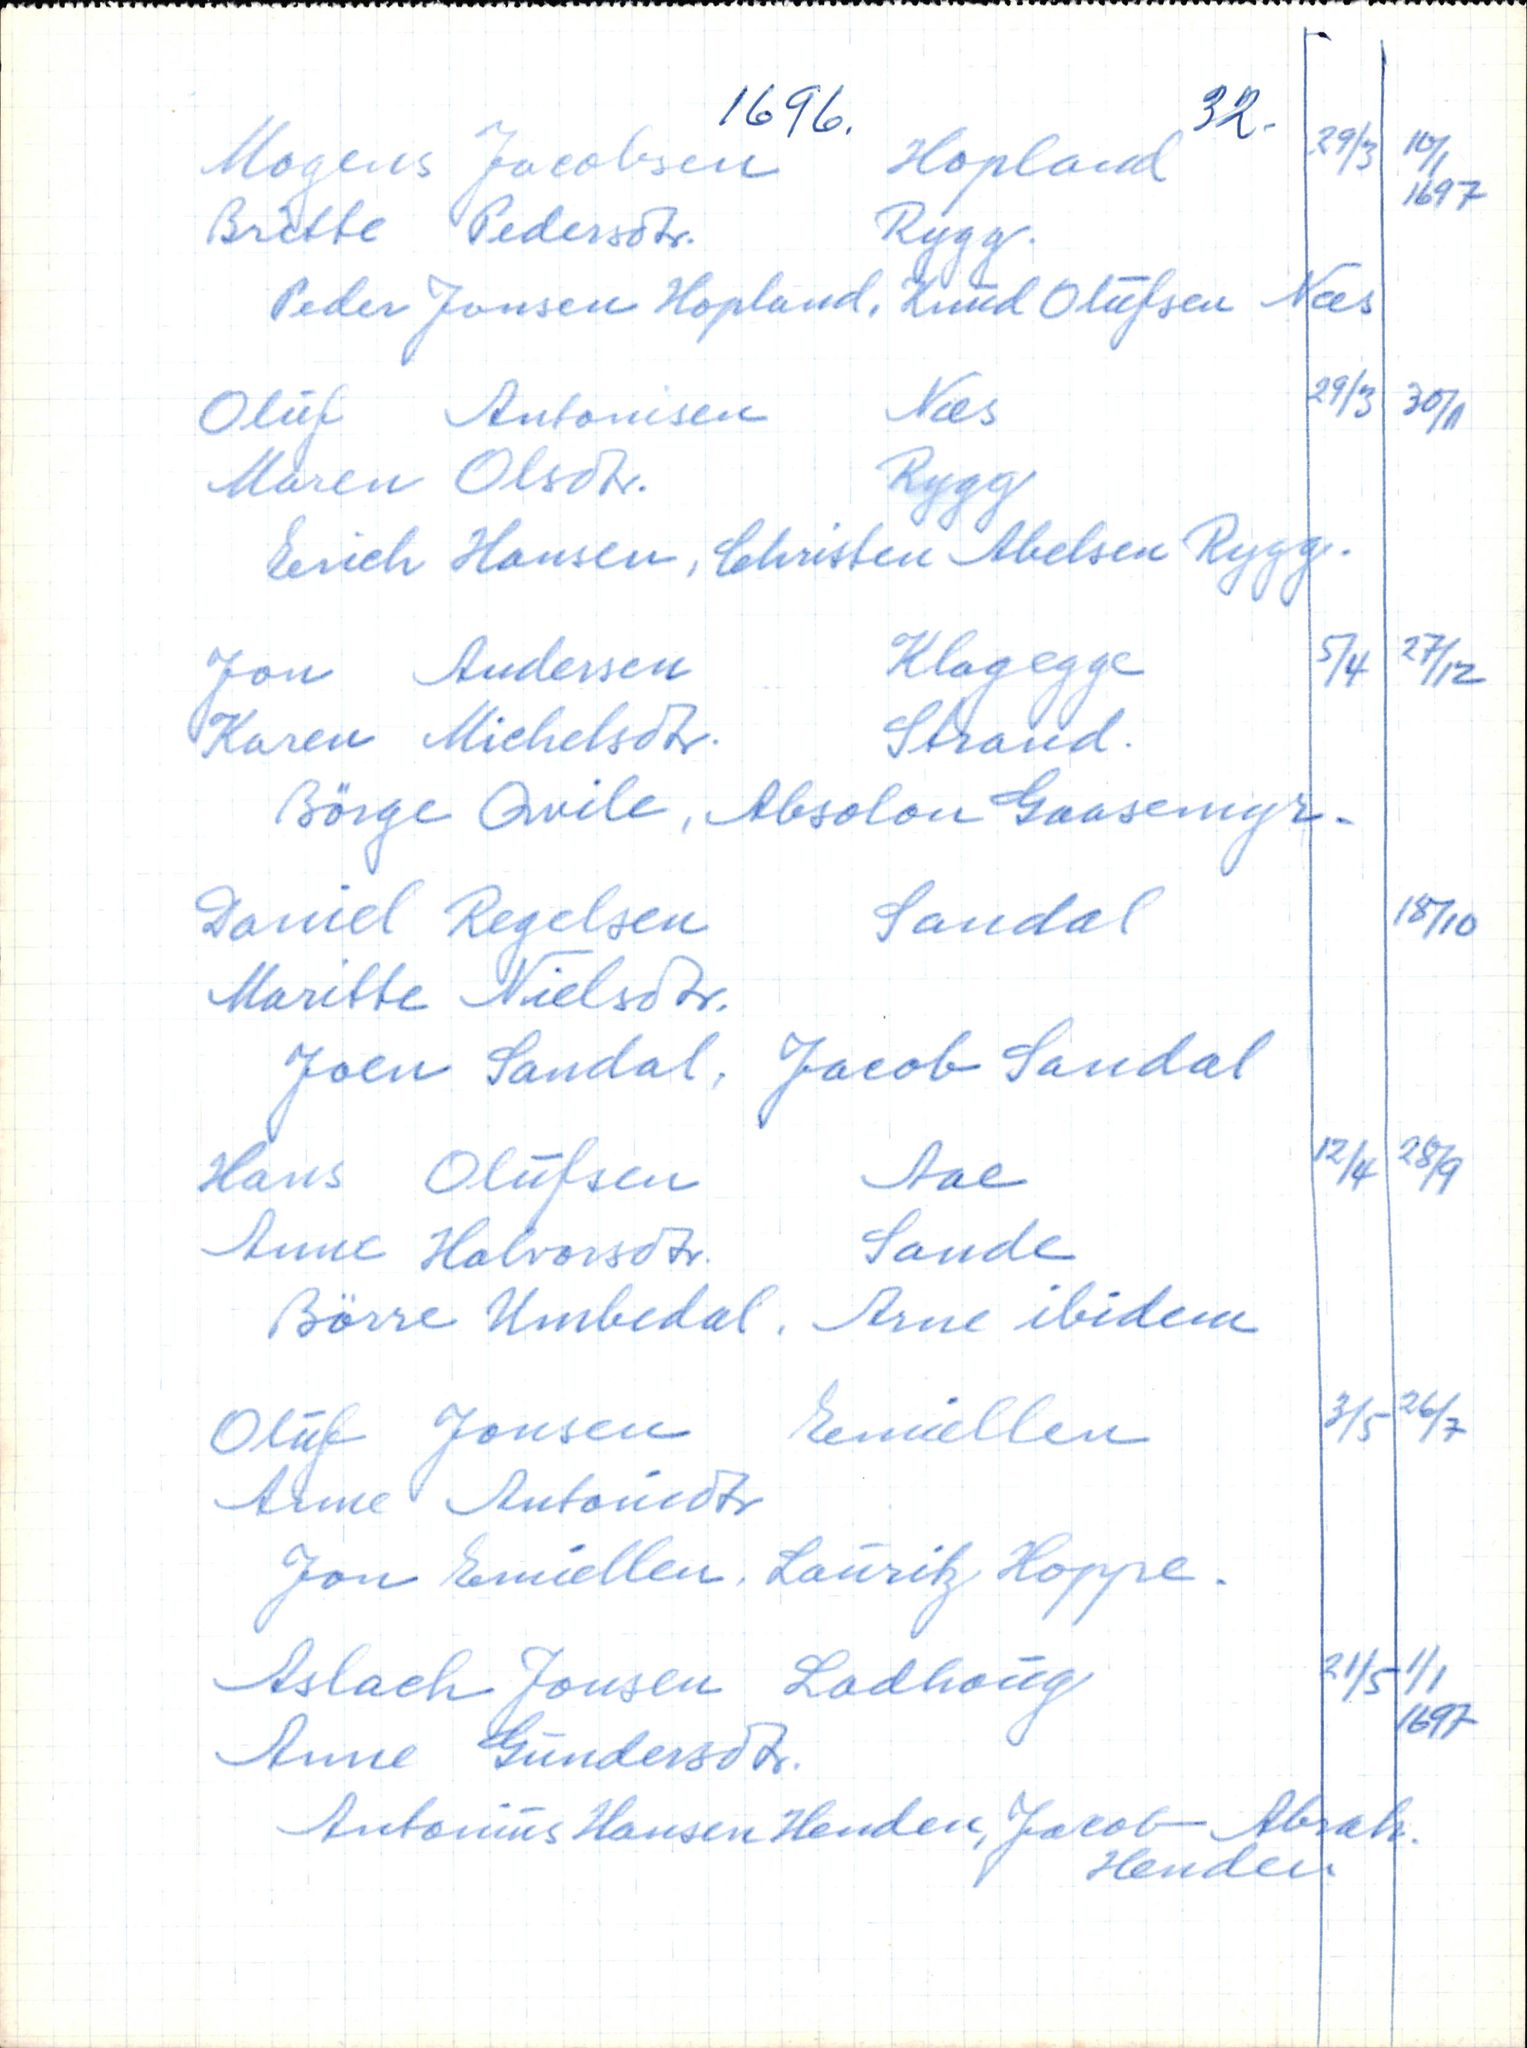 1696. 32.
Mogens Jacobsen Hopland 29/3 10/1
1697
Britte Pedersdtr. Rygg.
Peder Jonsen Hopland, Knud Olufsen Næs
Oluf Antonisen Næs 29/3 30/11
Maren Olsdtr. Rygg
Erich Hansen, Christen Abelsen Rygg.
Jon Andersen Klagegge 5/4 27/12
Karen Michelsdtr. Strand.
Börge Qvile, Absolon Gaasemyr.
Daniel Regelsen Sandal 18/10
Maritte Nielsdtr.
Joen Sandal, Jacob Sandal
Hans Olufsen Aae 12/4 28/9
Anne Halvorsdtr. Sande
Börre Umbedal, Arne ibidem
Oluf Jonsen Emiellen 3/5 26/7
Anne Antonidtr
Jon Emiellen, Lauritz Hoppe.
Aslach Jonsen Ladhoug 21/5 1/1
1697
Anne Gundersdtr.
Antonius Hansen Henden, Jacob Abrah.
Henden